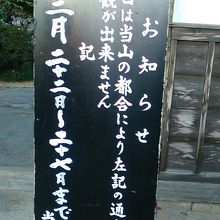 お知らせ
は当山の都合により左記の通
観が出来ません
記
二月二十三日〜二十七日まで
当